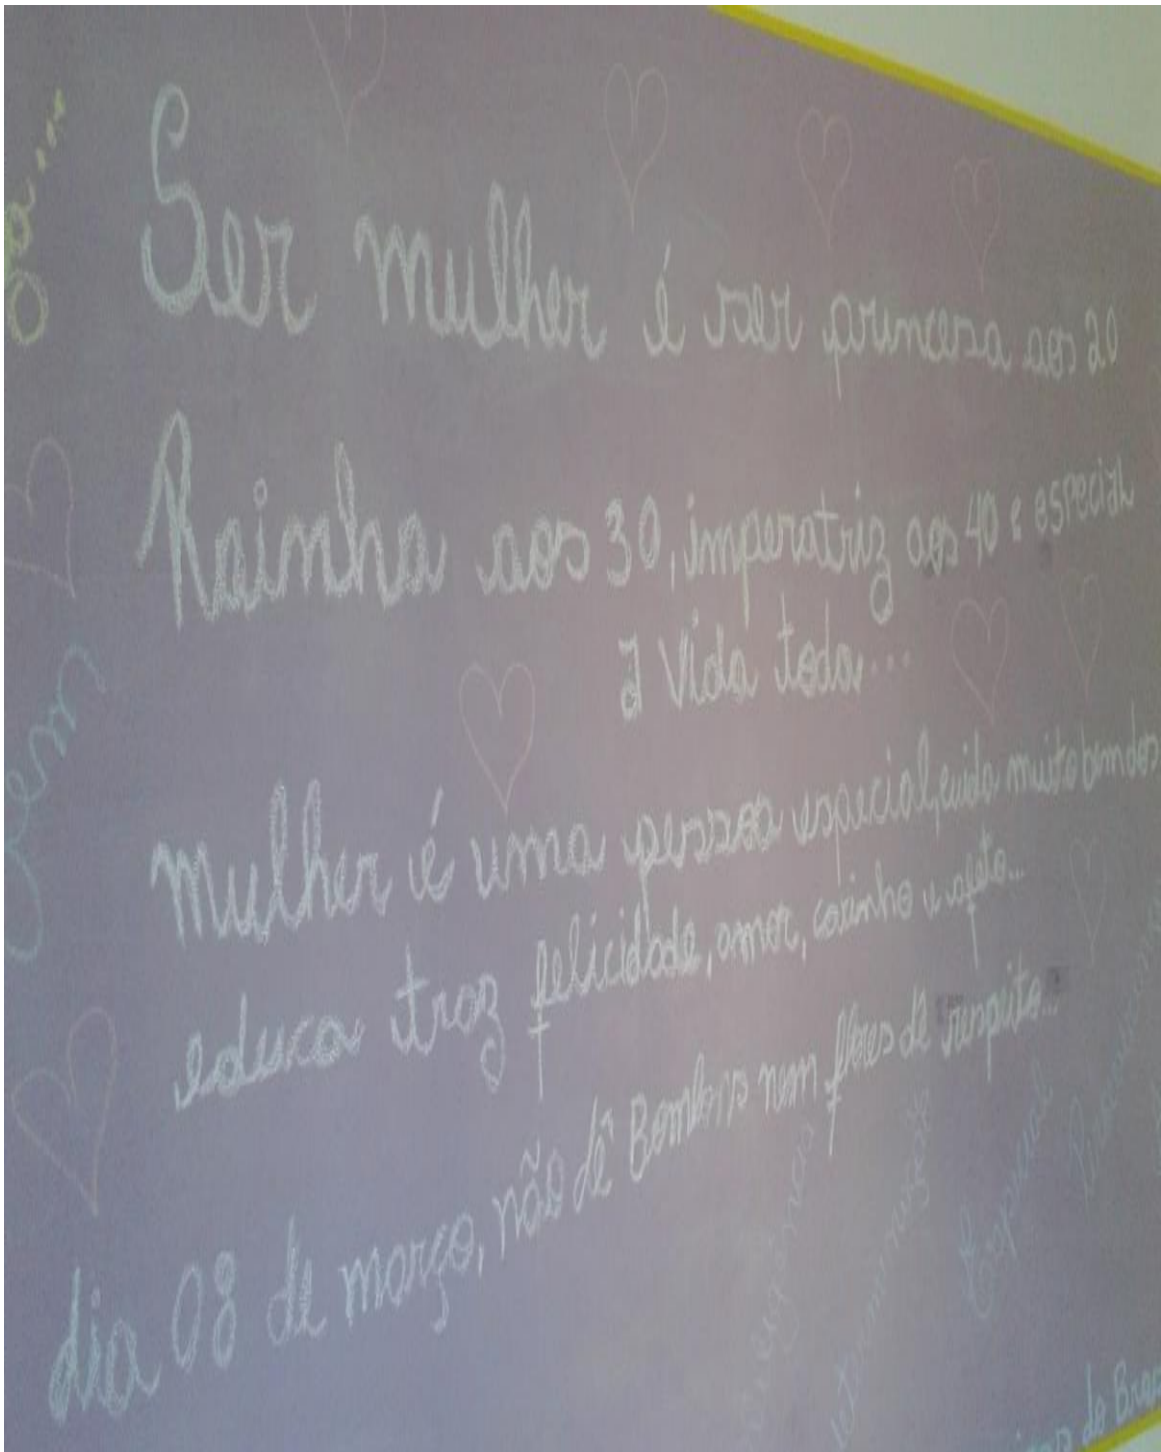 Ser mulher é ser princesa aos 20
Rainha aos 30, imperatriz aos 40 e especial
a vida toda...
mulher é uma pessoa especial, cuida muito bem dos
educa traz felicidade, amor, carinho e afeto...
dia 08 de março, não dê Bombons nem flores dê respeito...
Especial